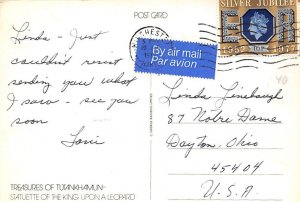 POST CARD
SILVER JUBILEE
E R
1952 1977
By air mail
Par avion
Linda - Just
couldn't resist
sending you what
I saw - see you
soon
Toni
Linda Linebaugh
87 Notre Dame
Dayton, Ohio
45404
U.S.A
TREASURES OF TUTANKHAMUN
STATUETTE OF THE KING UPON A LEOPARD